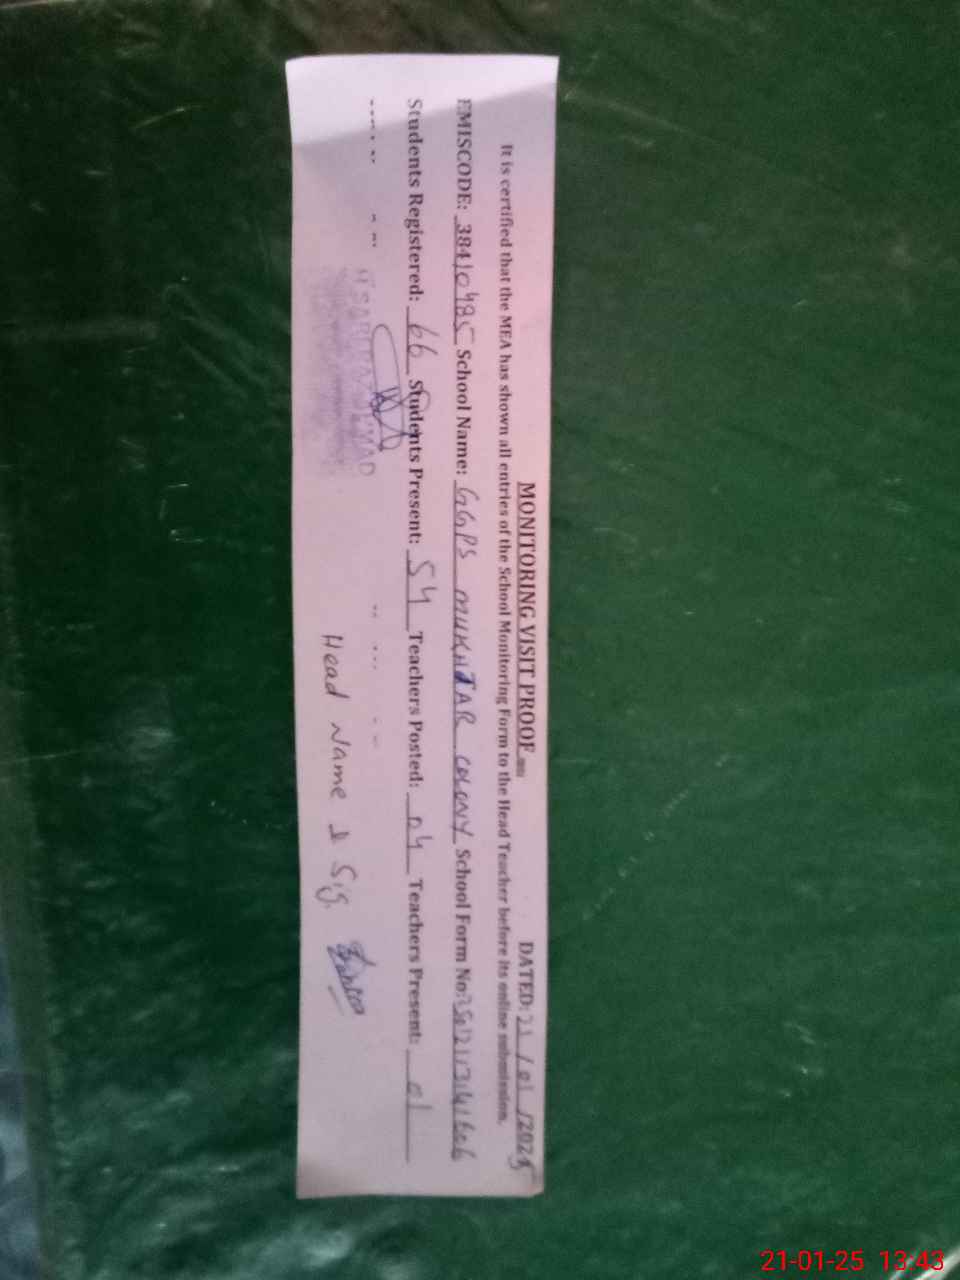 MONITORING VISIT PROOF DATED: 21/01/2025
It is certified that the MEA has shown all entries of the School Monitoring Form to the Head Teacher before its online submission.
EMISCODE: 38410485 School Name: GGPS MUKHTAR COLONY School Form No:
Students Registered: 66 Students Present: 54 Teachers Posted: 04 Teachers Present: 01
Head Name & Sig.
21-01-25 13:43